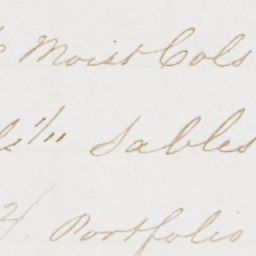 Moist Cols
1/11 Sables
Portfolio